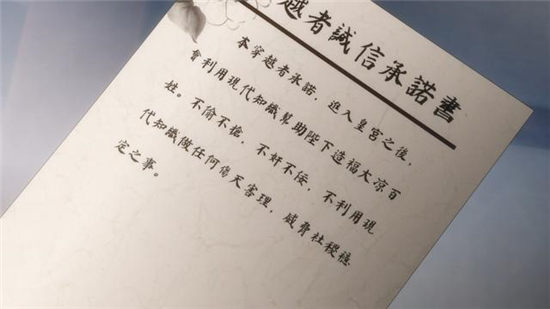 越者誠信承諾書
本穿越者承諾，進入皇宮之後，
會利用現代知織幫助陛下造福大凉百
姓。不偷不搶，不奸不佞，不利用現
代知織做任何傷天害理，威脅社稷穩
定之事。